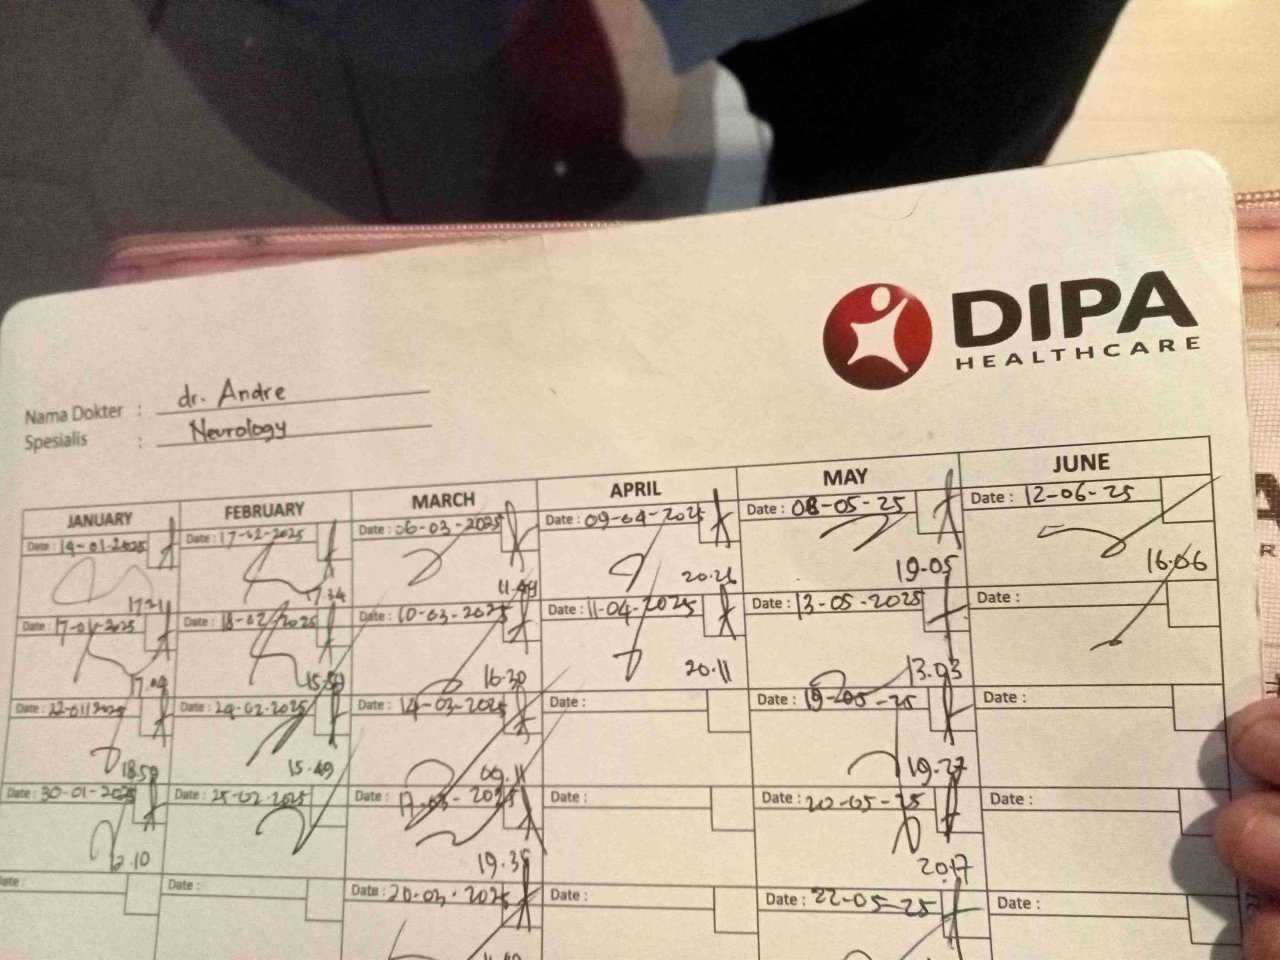 DIPA
HEALTHCARE
Nama Dokter : dr. Andre
Spesialis : Neurology
JANUARY FEBRUARY MARCH APRIL MAY JUNE
Date : 14-01-2025 Date : 17-02-2025 Date : 06-03-2025 Date : 09-04-2025 Date : 08-05-25 Date : 12-06-25
17.34 11.49 20.26 19.05 16.06
Date : 17-01-2025 Date : 18-02-2025 Date : 10-03-2025 Date : 11-04-2025 Date : 13-05-2025 Date :
17.09 16.30 20.11 13.03
Date : 22-01 2025 Date : 24-02-2025 Date : 14-03-2025 Date : Date : 19-05-25 Date :
18.59 15.49 09.11 19.27
Date : 30-01-2025 Date : 25-02-2025 Date : 17-03-2025 Date : Date : 20-05-25 Date :
12.10 19.35 20.17
Date : Date : Date : 20-03-2025 Date : Date : 22-05-25 Date :